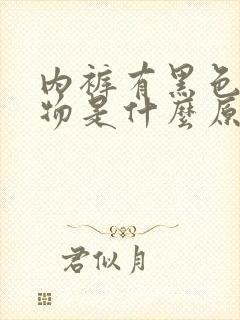 内裤有黑色
物是什麼原
君似月